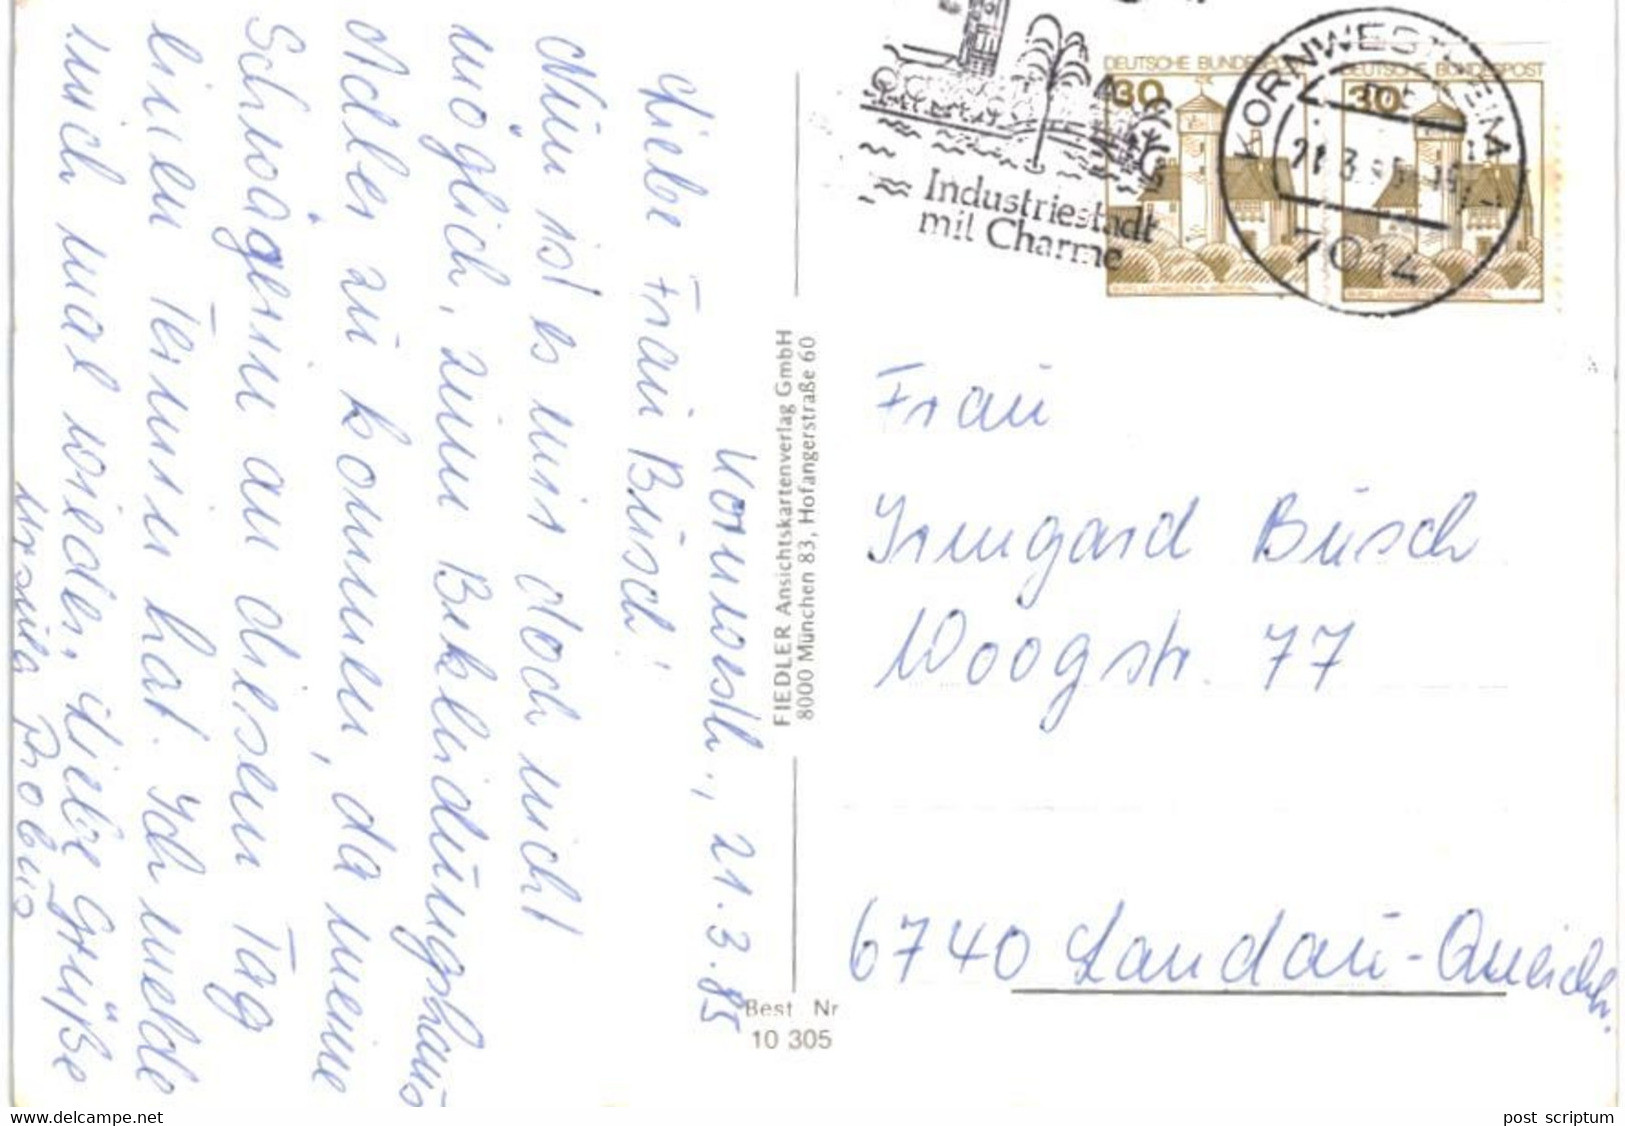 Kornwesth., 21.3.85
Liebe Frau Busch!
Nun ist es mir doch nicht
möglich, zum Bekleidungshaus
Adler zu kommen, da meine
Schwägerin an diesem Tag
einen Termin hat. Ich melde
mich mal wieder. Liebe Grüße
Ursula
FIEDLER Ansichtskartenverlag GmbH
8000 München 83, Hofangerstraße 60
Best Nr
10 305
Industriestadt
mit Charme
DEUTSCHE BUNDESPOST
30
DEUTSCHE BUNDESPOST
30
KORNWESTHEIM
7014
Frau
Irmgard Busch
Woogstr. 77
6740 Landau-Queichh.
delcampe.net
post scriptum